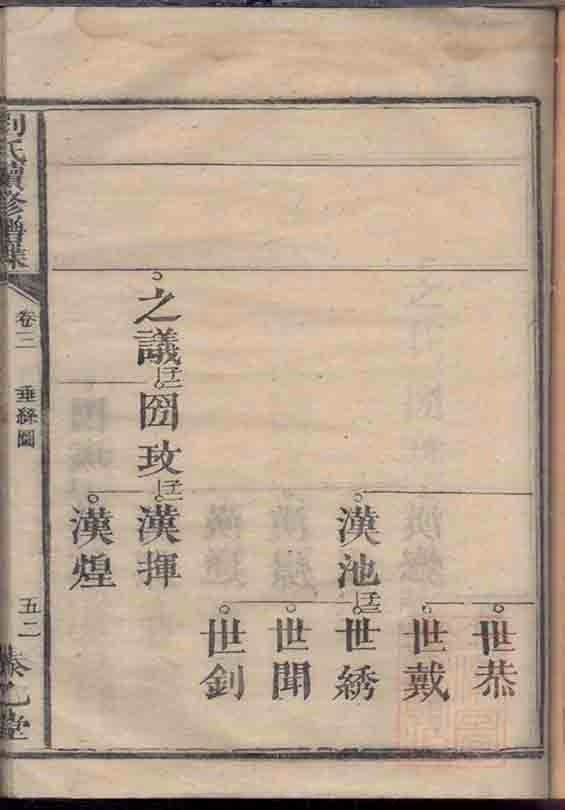 世恭
世戴
漢池
世綉
世聞
世釗
之議
玫
漢揮
漢煌
氏續修譜牒
卷三
垂絲圖
五二
堂